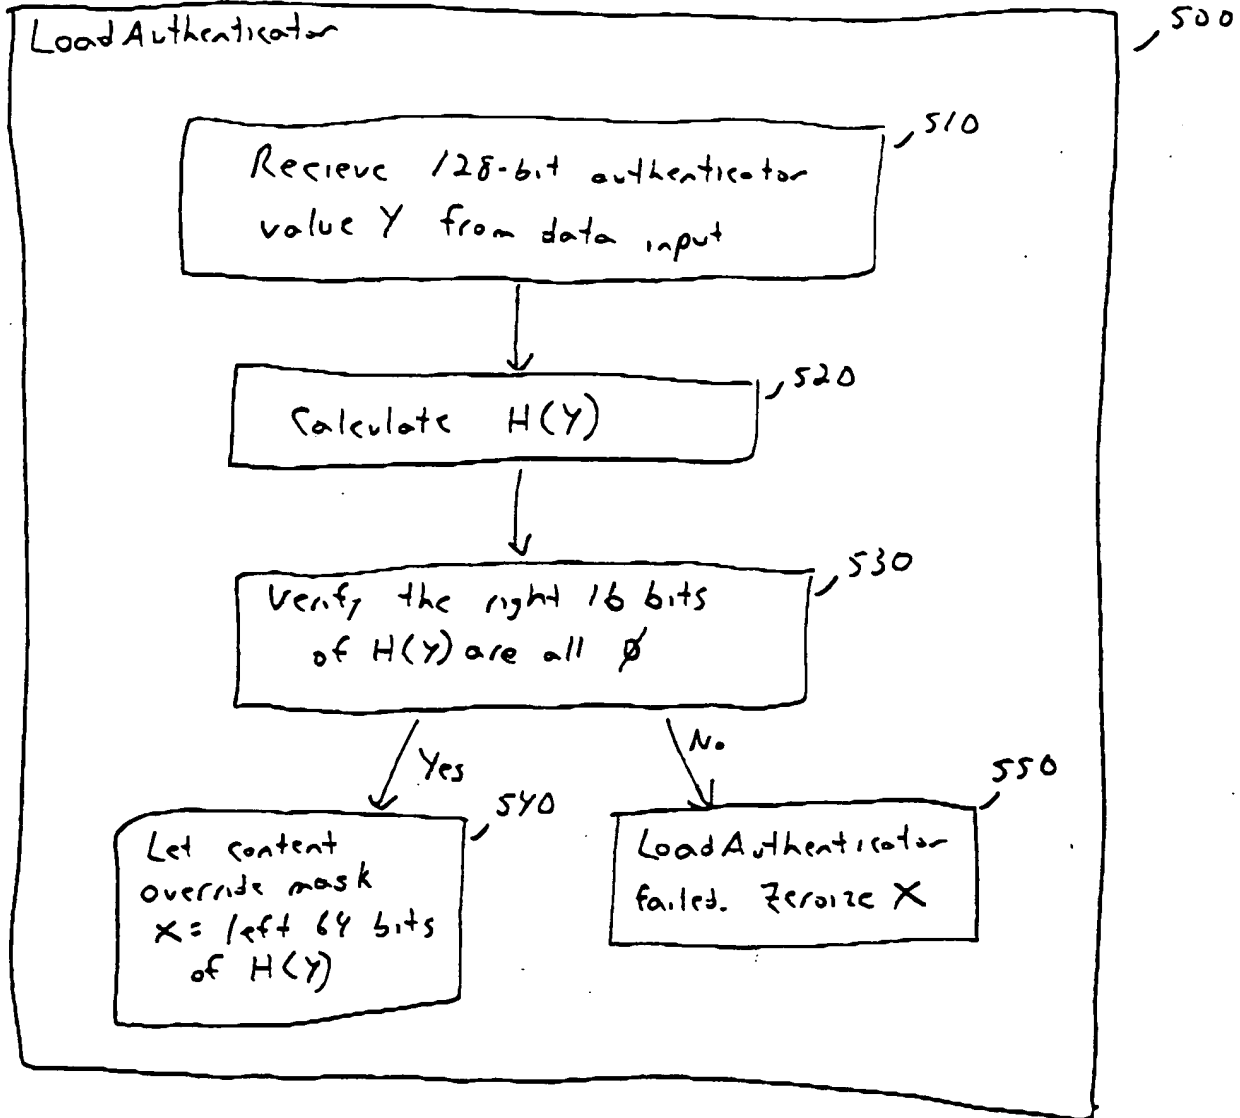 500
LoadAuthenticator
510
Recieve 128-bit authenticator
value Y from data input
520
Calculate H(Y)
530
Verify the right 16 bits
of H(Y) are all 0
Yes
No
540
Let content
override mask
X = left 64 bits
of H(Y)
550
LoadAuthenticator
failed. Zeroize X